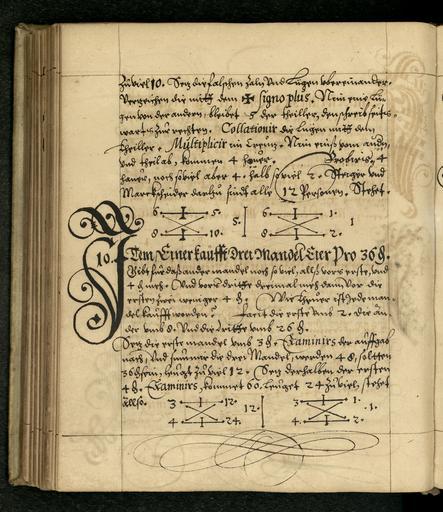 Zuviel 10. Setz die falschen Zaln vnd Lugen vbereinander.
Vergleichen die mitt dem ✠ signo plus. Nim eine Lu-
gen von der andern, bleibet 5 der theiller,
Zur rechten. Collationir die Lugen mitt dem
theiller. Multiplicir im Creutz. Nim eins vom andn,
vnd theil ab, kommen 4 hauer. Probirs, 4
hauer, noch soviel aber 4. halb soviel 2. Steiger vnd
sindt alle 12 Personen. Stehet.
6 5. 5. 6 1. 1
8 10. 8 2.
10. Item Einer kaufft drei Mandel Eier Pro 36 ₰.
Gibt für das ander mandel noch so viel, alls vors erste, vnd
4 ₰ mehr. Vnd vors dritte dreimal mehr dan vor die
ersten zwei weniger 4 ₰. Wie theuer ist Jede man-
del kaufft worden? die erste vmb 2. die an-
der vmb 8. Vnd die dritte vmb 26 ₰.
Setz die erste mandel vmb 3 ₰. Examinirs der auffgab
nach, Vnd summir die drei Mandel, werden 48, soltten
36 ₰ sein, leugt Zu viel 12. Setz derhalben der ersten
4 ₰. Examinirs, kommet 60. leuget 24 Zuviel, stehet
allso. 3 12. 12. 3 1. 1.
4 24. 4 2.